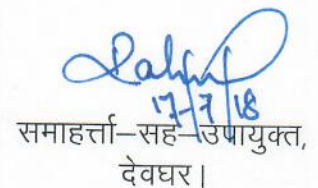 17/7/18
समाहर्त्ता–सह–उपायुक्त,
देवघर।